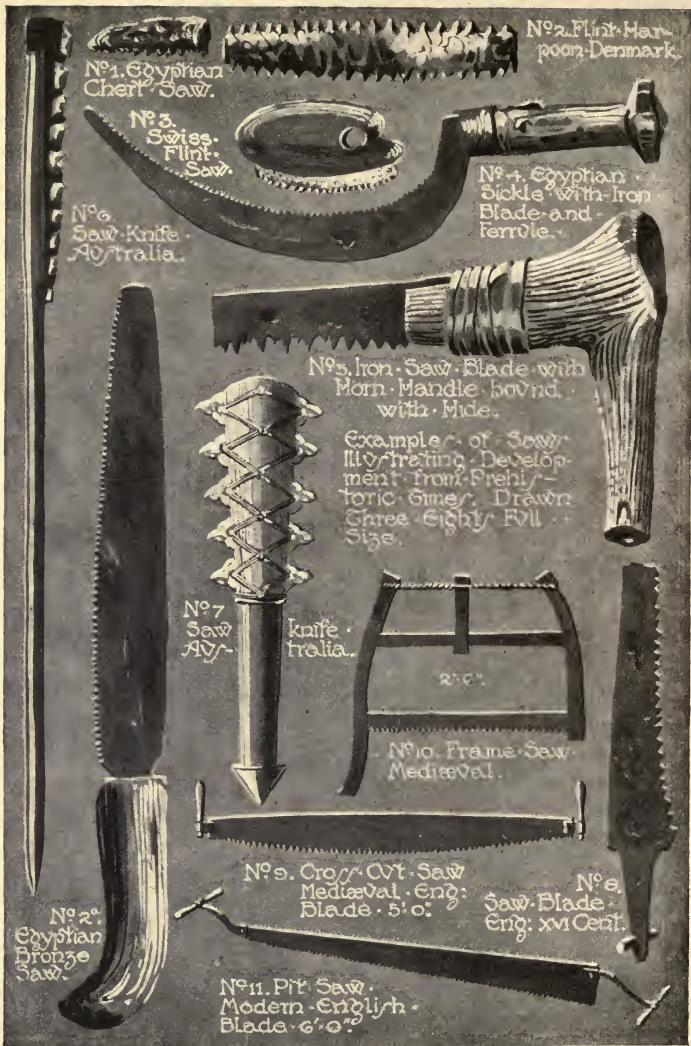 Nº1. Egyptian
Chert Saw.
Nº2. Flint Har-
poon Denmark.
Nº 3.
Swiss
Flint
Saw.
Nº 4. Egyptian
Sickle with Iron
Blade and
Ferrule.
Nº6.
Saw Knife
Australia.
Nº5. Iron Saw Blade with
Horn Handle bound
with Hide.
Examples of Saws
Illustrating Develop-
ment from Prehis-
toric Times. Drawn
Three Eights Full
Size.
Nº7
Saw knife
Aus- tralia.
2'·6".
Nº10. Frame Saw
Mediæval.
Nº9. Cross Cut Saw
Mediæval Eng:
Blade 5'·0".
Nº8.
Saw Blade
Eng: XVI Cent.
Nº2ª.
Egyptian
Bronze
Saw.
Nº11. Pit Saw.
Modern English
Blade 6'·0".